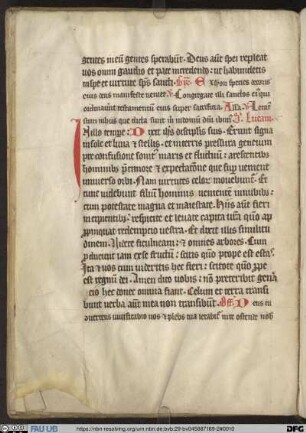 gentes in eū gentes sperabūt. Deus aūt spei repleat
vos omni gaudio et pace in credendo: ut habundetis
in spe et virtute spūs sancti.
eius deus manifeste veniet. Congregate illi sanctos eius qui
ordinaverūt testamentum eius super sacrificia. Alla. Letatꝰ
sum in hiis que dicta sunt in domum dni ibimꝰ. Lucam.
In illo tempe: Dixit ihs discipulis suis. Erunt signa
in sole et luna et stellis. et in terris pressura gentium
pre confusione sonitꝰ maris et fluctuū: arescentibꝰ
hominibꝰ p timore et expectacōne que supvenient
universo orbi. Nam virtutes celoꝝ movebunt. Et
tunc videbunt filiū hominis venientē in nubibꝰ:
cum potestate magna et maiestate. Hiis aūt fieri
incipientibꝰ: respicite et levate capita vrā quō ap
propinquat redempcio vestra. Et dixit illis similitu
dinem. Videte ficulneam: et omnes arbores. Cum
pducunt iam ex se fructū: scitis quō prope est estas.
Ita et vos cum videritis hec fieri: scitote quō ppe
est regnū dei. Amen dico vobis: nō preteribit gena
cio hec donec omnia fiant. Celum et terra transi
bunt verba aūt mea non transibūt. Deus tu
convertens vivificabis nos et plebs tua letabitꝰ in te ostende nob
FAU UB
DFG